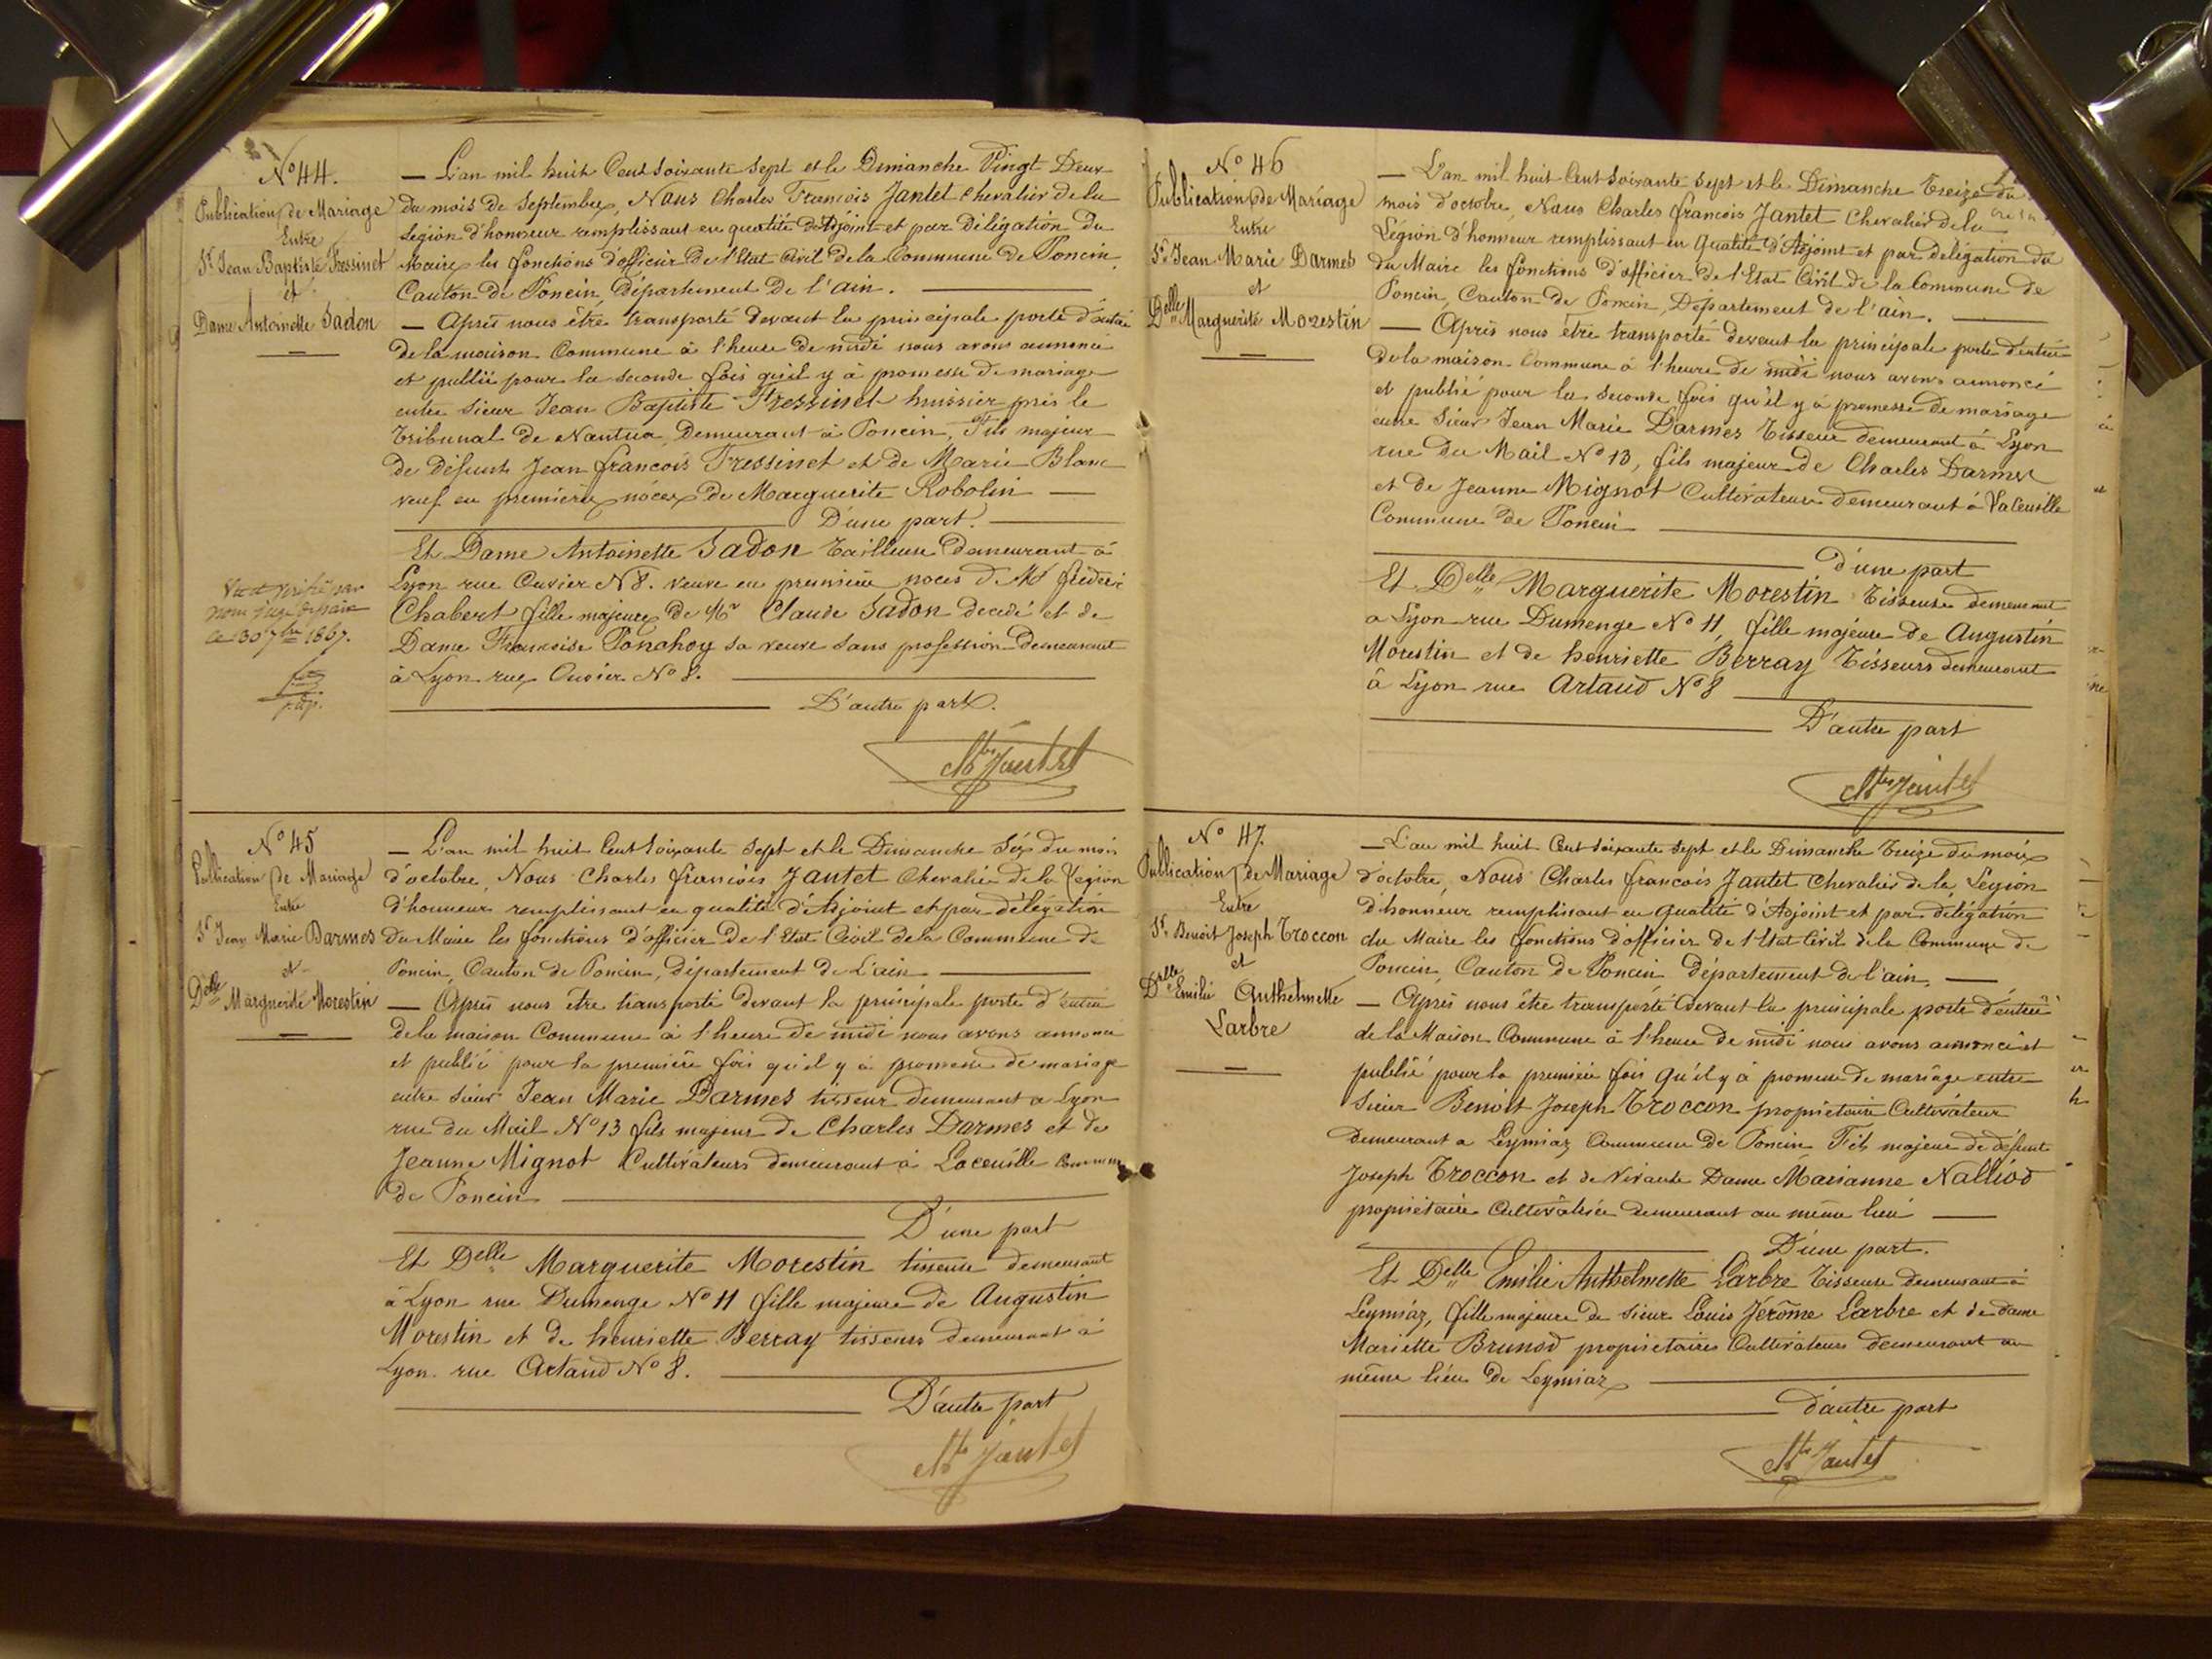 N° 44.
Publication de Mariage
Entre
Sr Jean Baptiste Fressinet
et
Dame Antoinette Sadon
— L'an mil huit Cent soixante sept et le Dimanche Vingt Deux
du mois de Septembre, Nous Charles François Jantet Chevalier de la
Légion d'honneur remplissant en qualité d'Adjoint et par Délégation du
Maire les fonctions d'officier De l'Etat Civil de la Commune de Poncin,
Canton de Poncin, Département De l'ain.
— Après nous être transporté devant la principale porte d'entrée
de la maison Commune à l'heure de midi nous avons annoncé
et publié pour la seconde fois qu'il y à promesse de mariage
entre Sieur Jean Baptiste Fressinet huissier près le
Tribunal de Nantua, Demeurant à Poncin, Fils majeur
de défunt Jean françois Fressinet et de Marie Blanc
veuf en première nôces de Marguerite Robolin
D'une part.
Et Dame Antoinette Sadon Tailleuse Demeurant à
Lyon rue Cuvier N° 8. veuve en première noces de Mr fréderic
Chabert fille majeure de Mr Claude Sadon décedé et de
Dame Françoise Ponchoy sa veuve sans profession Demeurant
à Lyon rue Cuvier N° 8.
D'autre part.
Vu et vérifié par
nous juge de paix
le 30 7bre 1867.
Chs Jantet
N° 45
Publication de Mariage
Entre
Sr Jean Marie Darmes
et
Delle Marguerite Morestin
— L'an mil huit Cent soixante Sept et le Dimanche Six du mois
d'octobre, Nous Charles françois Jantet Chevalier de la Légion
d'honneur remplissant en qualité d'Adjoint et par délégation
du Maire les fonctions d'officier De l'Etat Civil de la Commune de
Poncin, Canton de Poncin, Département de L'ain
— Après nous être transporté devant la principale porte d'entrée
de la maison Commune à l'heure de midi nous avons annoncé
et publié pour la première fois qu'il y à promesse de mariage
entre sieur Jean Marie Darmes tisseur demeurant a Lyon
rue du Mail N° 13 fils majeur de Charles Darmes et de
Jeanne Mignot Cultivateurs demeurant à commune
de Poncin
D'une part
Et Delle Marguerite Morestin tisseuse demeurant
à Lyon rue Dumenge N° 11 fille majeure de Augustin
Morestin et de henriette Berray tisseurs demeurant à
Lyon rue Artaud N° 8.
D'autre part
Chs Jantet
N° 46
Publication de Mariage
Entre
Sr Jean Marie Darmes
et
Delle Marguerite Morestin
— L'an mil huit Cent soixante Sept et le Dimanche treize du
mois d'octobre, Nous Charles françois Jantet Chevalier de la
Légion d'honneur remplissant en Qualité d'Adjoint et par délégation du
du Maire les fonctions d'officier de l'Etat Civil de la Commune de
Poncin, Canton de Poncin, Département de l'ain.
— Après nous être transporté devant la principale porte d'entrée
de la maison Commune à l'heure de midi nous avons annoncé
et publié pour la seconde fois qu'il y à promesse de mariage
entre Sieur Jean Marie Darmes Tisseur demeurant à Lyon
rue du Mail N° 13, fils majeur de Charles Darmes
et de Jeanne Mignot Cultivateurs demeurant à
Commune de Poncin
d'une part
Et Delle Marguerite Morestin Tisseuse demeurant
a Lyon rue Dumenge N° 11, fille majeure de Augustin
Morestin et de henriette Berray Tisseurs demeurant
à Lyon rue Artaud N° 8
D'autre part
Chs Jantet
N° 47.
Publication de Mariage
Entre
Sr Benoit Joseph Troccon
et
Delle Emilie Anthelmette
Larbre
— L'an mil huit Cent soixante sept et le Dimanche treize du mois
d'octobre, Nous Charles françois Jantet Chevalier de la Légion
d'honneur remplissant en Qualité d'Adjoint et par délégation
du Maire les fonctions d'officier de l'Etat Civil de la Commune de
Poncin, Canton de Poncin département de l'ain.
— Après nous être transporté devant la principale porte d'entrée
de la Maison Commune à l'heure de midi nous avons annoncé et
publié pour la première fois qu'il y à promesse de mariage entre
Sieur Benoit Joseph Troccon propriétaire Cultivateur
demeurant a Leymiaz Commune de Poncin Fils majeur de défunt
Joseph Troccon et de vivante Dame Marianne Nalliod
propriétaire Cultivatrice demeurant au même lieu
D'une part.
Et Delle Emilie Anthelmette Larbre Tisseuse demeurant à
Leymiaz, fille majeure de Sieur Louis Jérôme Larbre et de dame
Mariette Brunod propriétaires Cultivateurs demeurant au
même lieu de Leymiaz
d'autre part
Chs Jantet